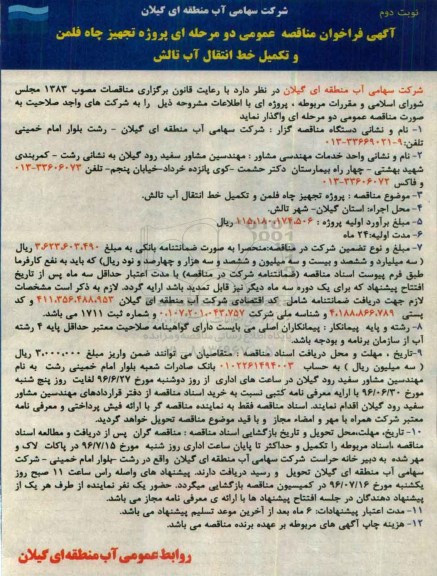 شرکت سهامی آب منطقه ای گیلان
نوبت دوم
آگهی فراخوان مناقصه عمومی دو مرحله ای پروژه تجهیز چاه فلمن
و تکمیل خط انتقال آب تالش
شرکت سهامی آب منطقه ای گیلان در نظر دارد با رعایت قانون برگزاری مناقصات مصوب ۱۳۸۳ مجلس
شورای اسلامی و مقررات مربوطه ، پروژه ای با اطلاعات مشروحه ذیل را به شرکت های واجد صلاحیت به
صورت مناقصه عمومی دو مرحله ای واگذار نماید
۱- نام و نشانی دستگاه مناقصه گزار : شرکت سهامی آب منطقه ای گیلان - رشت بلوار امام خمینی
تلفن:۹-۳۳۶۶۹۰۲۱-۰۱۳
۲- نام و نشانی واحد خدمات مهندسی مشاور : مهندسین مشاور سفید رود گیلان به نشانی رشت - کمربندی
شهید بهشتی - چهار راه بیمارستان دکتر حشمت -کوی پانزده خرداد-خیابان پنجم- تلفن ۳۳۶۰۶۰۷۳-۰۱۳
و فاکس ۳۳۶۰۶۰۷۲-۰۱۳
۳- موضوع مناقصه : پروژه تجهیز چاه فلمن و تکمیل خط انتقال آب تالش.
۴- محل اجراء: استان گیلان- شهر تالش.
۵- مبلغ برآورد اولیه پروژه : ۱۱۵،۱۸۰،۱۷۴،۵۰۶ ریال
۶- مدت اولیه:۲۴ ماه
۷- مبلغ و نوع تضمین شرکت در مناقصه:منحصرا به صورت ضمانتنامه بانکی به مبلغ ۳،۶۲۳،۶۰۳،۴۹۰ ریال
( سه میلیارد و ششصد و بیست و سه میلیون و ششصد و سه هزار و چهارصد و نود ریال) که باید به نفع کارفرما
طبق فرم پیوست اسناد مناقصه (ضمانتنامه شرکت در مناقصه) با مدت اعتبار حداقل سه ماه پس از تاریخ
افتتاح پیشنهاد که برای یک دوره سه ماه دیگر نیز قابل تمدید باشد ارایه گردد. لازم به ذکر است مشخصات
لازم جهت دریافت ضمانتنامه شامل کد اقتصادی شرکت آب منطقه ای گیلان ۴۱۱،۳۵۶،۴۸۸،۹۵۳ و کد
پستی ۴،۱۸۸،۸۶۶،۷۸۹ و شناسه ملی شرکت ۱۰،۷۲۰،۱۰۴۳،۷۵۷ و شماره ثبت ۱۷۱۱ می باشد.
۸- رشته و پایه پیمانکار : پیمانکاران اصلی می بایست دارای گواهینامه صلاحیت معتبر حداقل پایه ۴ رشته
آب از سازمان برنامه و بودجه باشد.
۹-تاریخ ، مهلت و محل دریافت اسناد مناقصه : متقاضیان می توانند ضمن واریز مبلغ ۳،۰۰۰،۰۰۰ ریال
( سه میلیون ریال ) به حساب ۰۱۰۲۲۶۱۴۹۴۰۰۳ بانک صادرات شعبه بلوار امام خمینی رشت به نام
مهندسین مشاور سفید رود گیلان در ساعت های اداری از روز دوشنبه مورخ ۹۶/۶/۲۷ لغایت روز پنج شنبه
مورخ ۹۶/۰۶/۳۰ با ارایه معرفی نامه کتبی نسبت به خرید اسناد مناقصه از دفتر قراردادهای مهندسین مشاور
سفید رود گیلان اقدام نمایند. اسناد مناقصه فقط به نماینده مناقصه گر با ارائه فیش پرداختی و معرفی نامه
معتبر شرکت همراه با مهر و امضاء مجاز و با قید موضوع مناقصه تحویل خواهد گردید.
۱۰- تاریخ، مهلت،محل تحویل و تاریخ بازگشایی اسناد مناقصه : مناقصه گران پس از دریافت و مطالعه اسناد
مناقصه بامستند مربوطه را تکمیل و حداکثر تا پایان ساعت اداری روز شنبه مورخ ۹۶/۷/۱۵ در پاکات لاک و
مهر شده به دبیر خانه حراست شرکت سهامی آب منطقه ای گیلان واقع در رشت -بلوار امام خمینی - شرکت
سهامی آب منطقه ای گیلان تحویل و رسید دریافت دارند. پیشنهاد های واصله راس ساعت ۱۱ صبح روز
یکشنبه مورخ ۹۶/۰۷/۱۶ در کمیسیون مناقصه بازگشایی میگردد. حضور یک نفر نماینده از طرف هر یک از
پیشنهاد دهندگان در جلسه افتتاح پیشنهاد ها با ارائه ی معرفی نامه مجاز می باشد.
۱۱- مدت اعتبار پیشنهادات: ۶ ماه بعد از آخرین موعد تسلیم پیشنهاد می باشد.
۱۲- هزینه چاپ آگهی های مربوطه بر عهده برنده مناقصه می باشد.
روابط عمومی آب منطقه ای گیلان